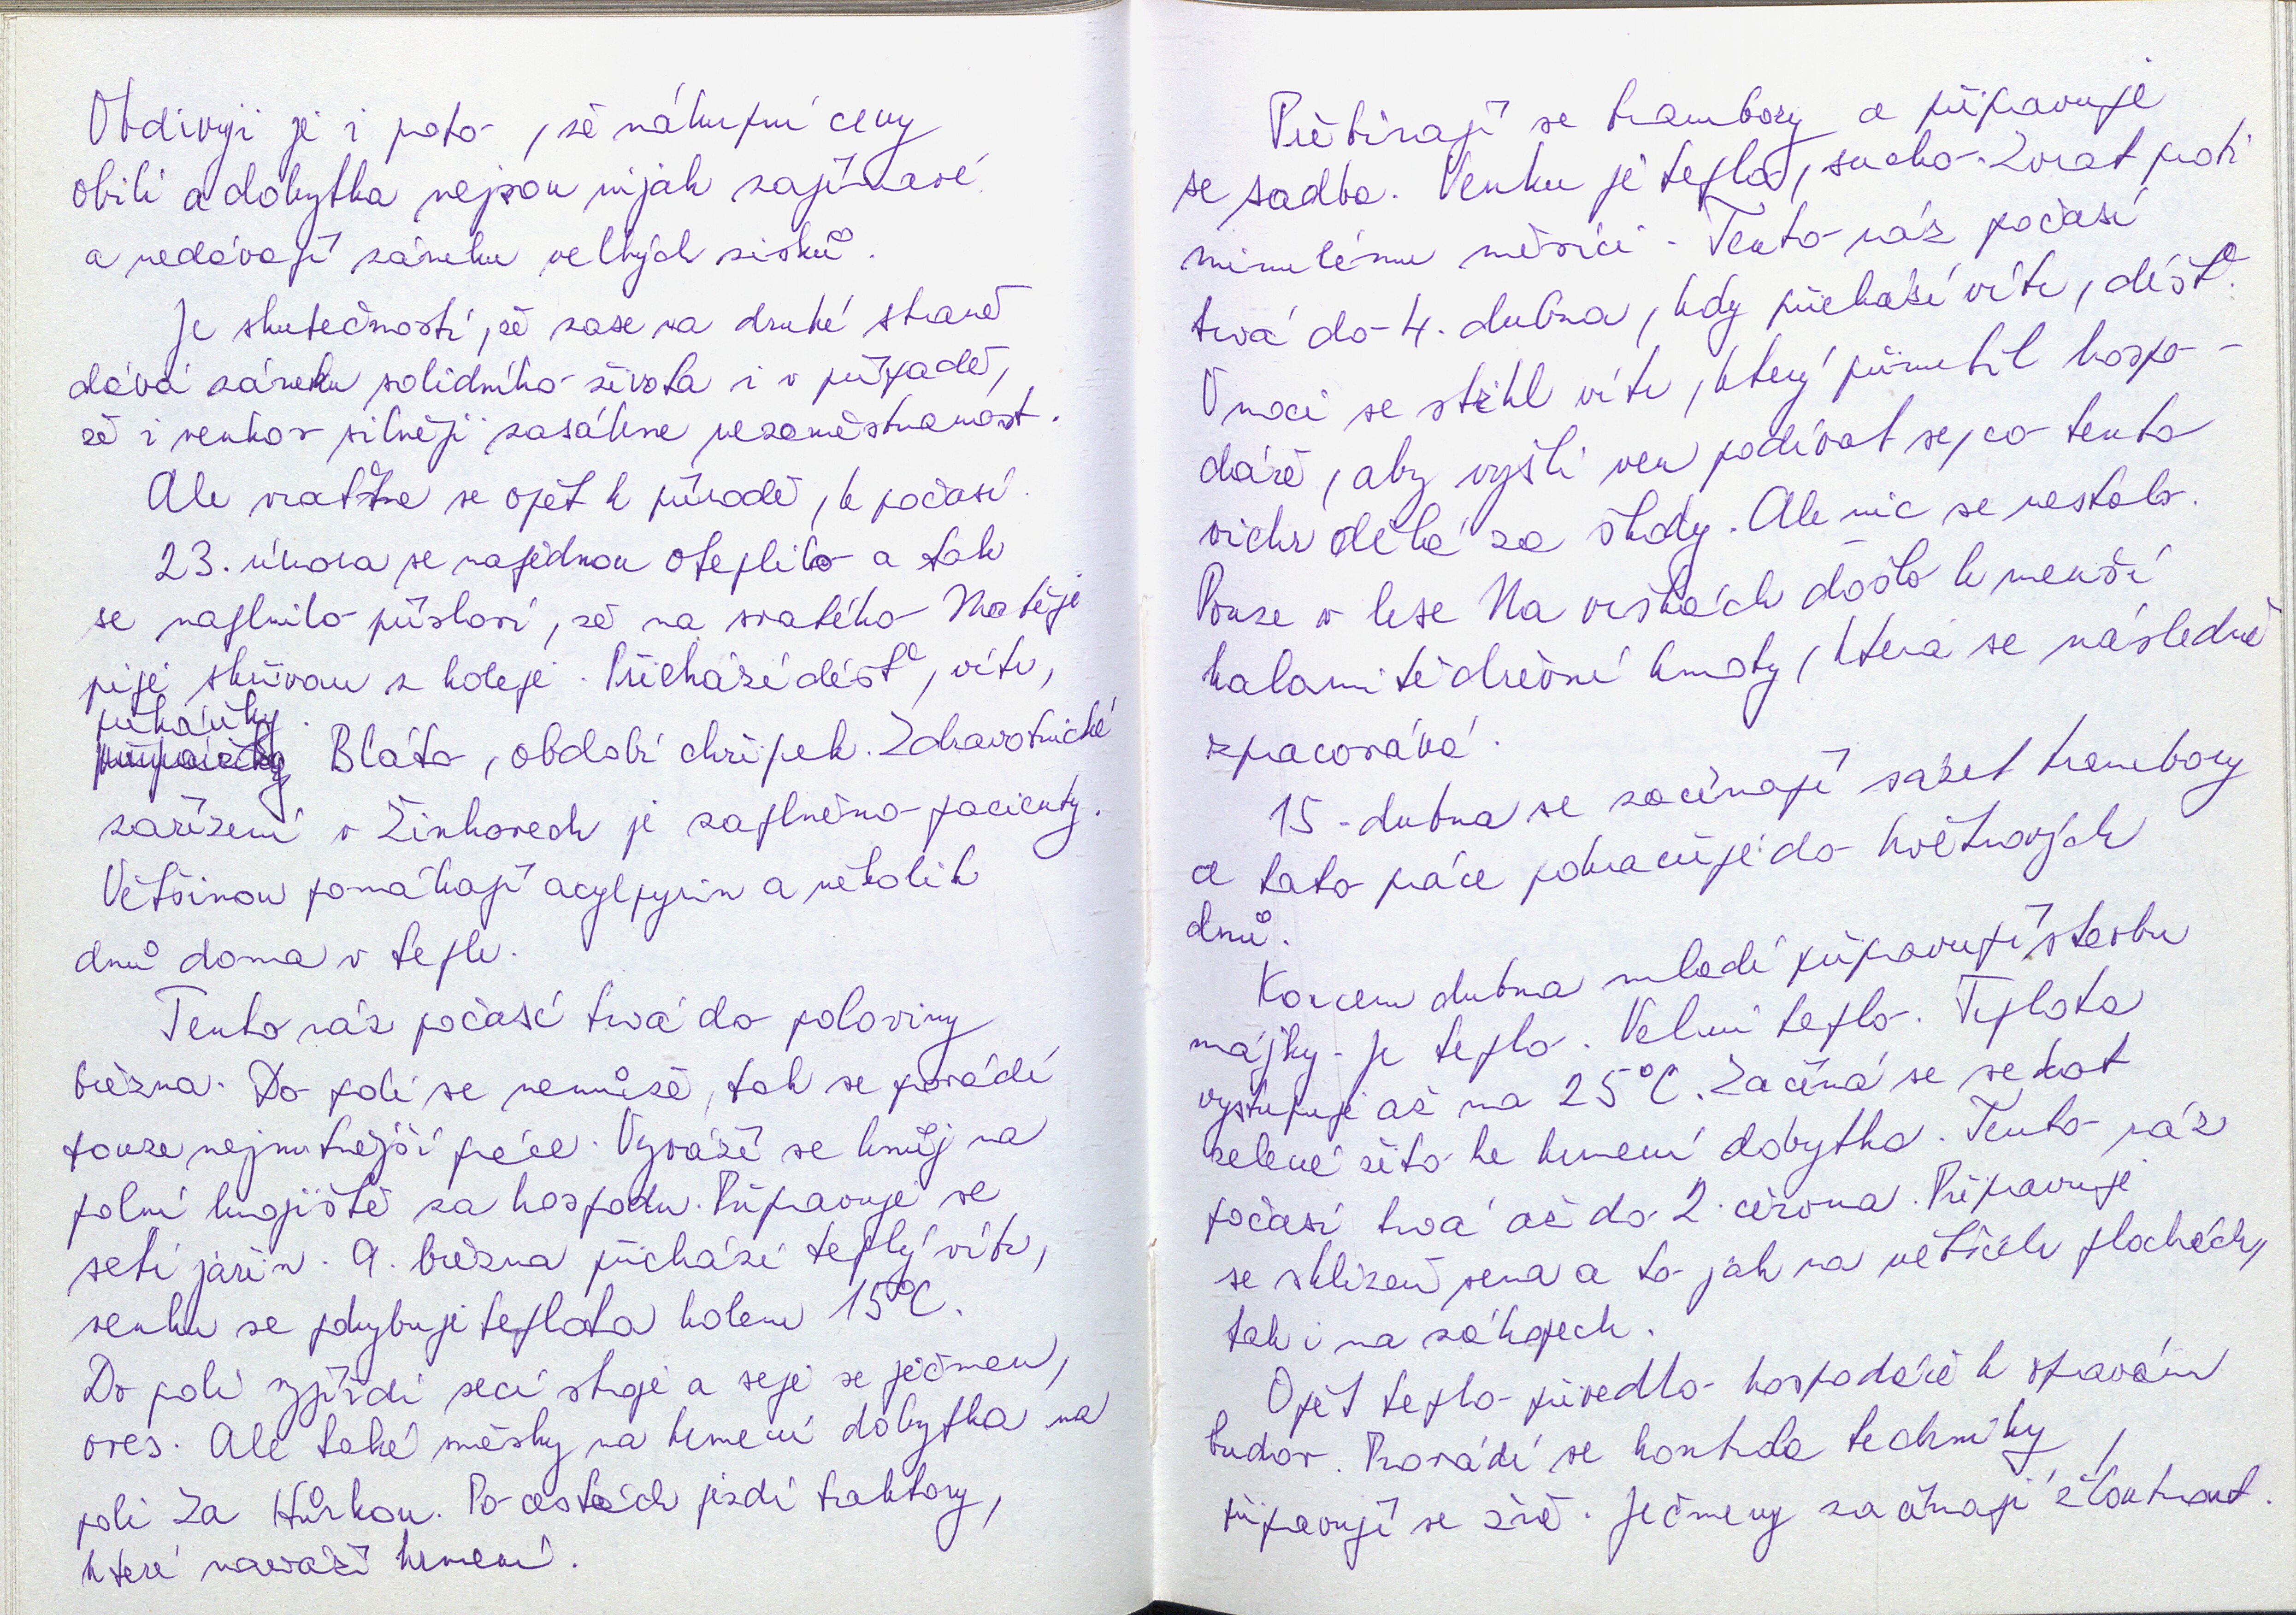 Obdivuji je i proto, že nákupní ceny
obilí a dobytka nejsou nijak zajímavé
a nedávají záruku velkých zisků.
Je skutečností, že zase na druhé straně
dává záruku solidního života i v případě,
že i venkov silněji zasáhne nezaměstnanost.
Ale vraťme se opět k přírodě, k počasí.
23. února se najednou oteplilo a tak
se naplnilo přísloví, že na svatého Matěje
pije skřivan z koleje. Přichází déšť, vítr,
přeháňky.
Bláto, období chřipek. Zdravotnické
zařízení v Žinkovech je zaplněno pacienty.
Většinou pomáhají acylpyrin a několik
dnů doma v teple.
Tento ráz počasí trvá do poloviny
března. Do polí se nemůže, tak se provádí
pouze nejnutnější práce. Vyváží se hnůj na
polní hnojiště za hospodu. Připravuje se
setí jařin. 9. března přichází teplý vítr,
venku se pohybuje teplota kolem 15°C.
Do polí vyjíždí secí stroje a seje se ječmen,
oves. Ale také směsky na krmení dobytka na
poli Za Hůrkou. Po cestách jezdí traktory,
které naváží krmení.
Přebírají se brambory a připravuje
se sadba. Venku je teplo, sucho. Zvrat proti
minulému měsíci. Tento ráz počasí
trvá do 4. dubna, kdy přichází vítr, déšť.
V noci se strhl vítr, který přinutil hospo-
dáře, aby vyšli ven podívat se, co tento
vichr dělá za škody. Ale nic se nestalo.
Pouze v lese Na vrškách došlo k menší
kalamitě dřevní hmoty, která se následně
zpracovává.
15. dubna se začínají sázet brambory
a tato práce pokračuje do květnových
dnů.
Koncem dubna mladí připravují stavbu
májky. Je teplo. Velmi teplo. Teplota
vystupuje až na 25°C. Začíná se sekat
zelené žito ke krmení dobytka. Tento ráz
počasí trvá až do 2. června. Připravuje
se sklizeň sena a to jak na větších plochách,
tak i na záhojech.
Opět teplo přivedlo hospodáře k opravám
budov. Provádí se kontrola techniky,
připravují se žně. Ječmeny začínají žloutnout.